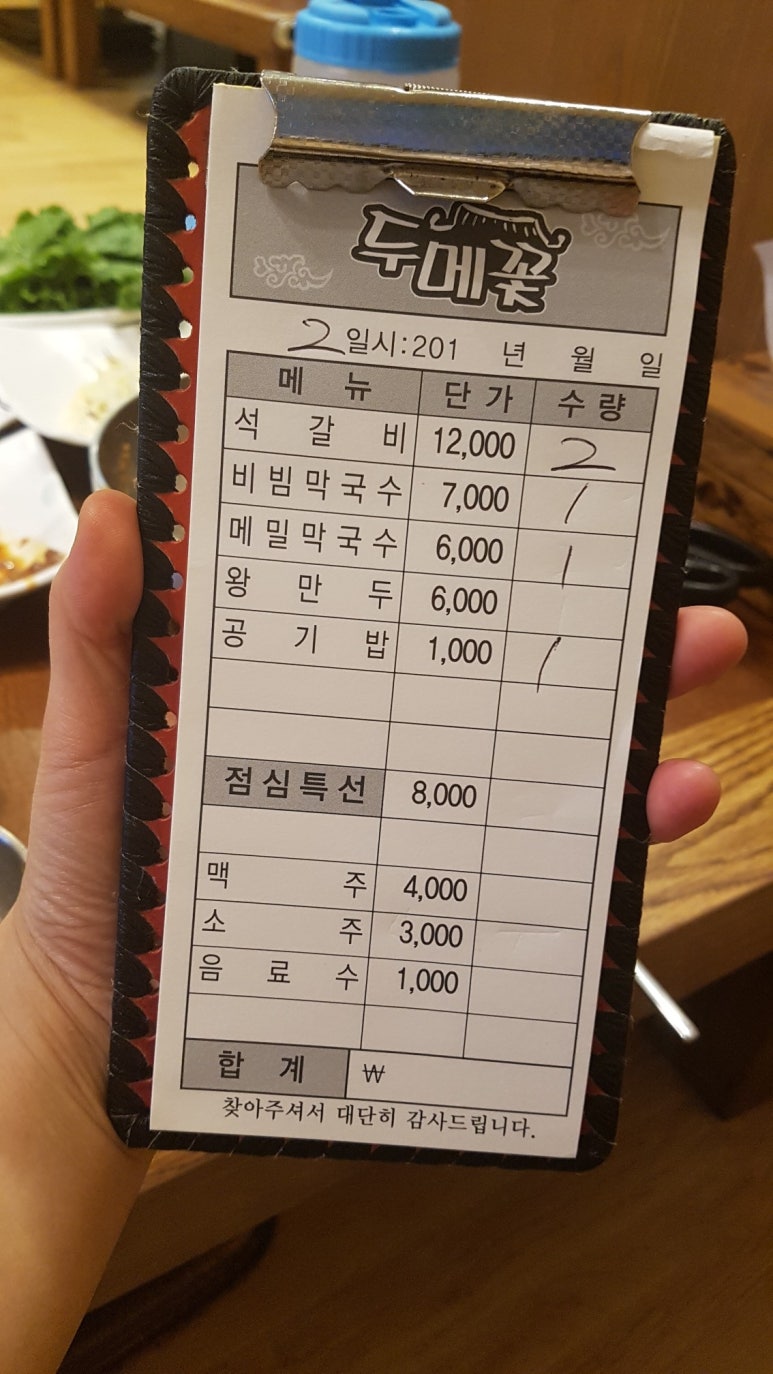 두메꽃
2 일시:201 년 월 일
메 뉴 단 가 수 량
석 갈 비 12,000 2
비빔막국수 7,000 1
메밀막국수 6,000 1
왕 만 두 6,000
공 기 밥 1,000 1
점심특선 8,000
맥 주 4,000
소 주 3,000
음 료 수 1,000
합 계 ₩
찾아주셔서 대단히 감사드립니다.